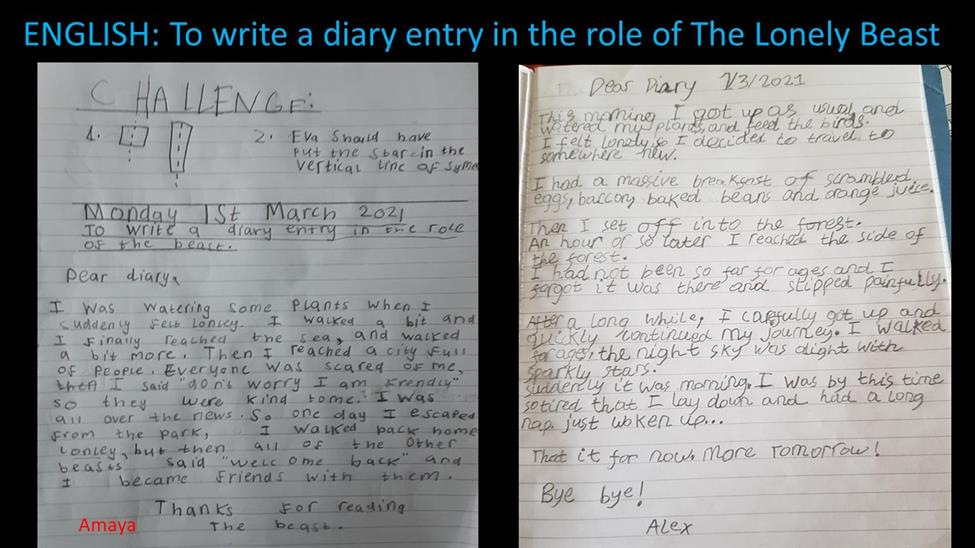 ENGLISH: To write a diary entry in the role of The Lonely Beast
CHALLENGE:
1.
2. Eva should have
put the star in the
vertical line of symme
Monday 1st March 2021
To write a diary entry in the role
of the beast.
Dear diary,
I was watering some plants when I
suddenly felt lonley. I walked a bit and
I finally reached the sea, and walked
a bit more. Then I reached a city full
of people. Everyone was scared of me,
then I said "don't worry I am frendly"
so they were kind to me. I was
all over the news. So one day I escaped
from the park, I walked back home
lonley, but then all of the other
beasts said "welcome back" and
I became friends with them.
Thanks for reading
The beast.
Amaya
Dear Diary 1/3/2021
This morning I got up as usual and
watered my plants, and feed the birds.
I felt lonely so I decided to travel to
somewhere new.
I had a massive breakfast of scrambled
eggs, baccon, baked beans and orange juice.
Then I set off into the forest.
An hour or so later I reached the side of
the forest.
I had not been so far for ages and I
forgot it was there and slipped painfully.
After a long while, I carefully got up and
quickly continued my journey. I walked
for ages, the night sky was alight with
sparkly stars.
Suddenly it was morning. I was by this time
so tired that I lay down and had a long
nap. just woken up...
That it for now. More Tomorrow!
Bye bye!
Alex